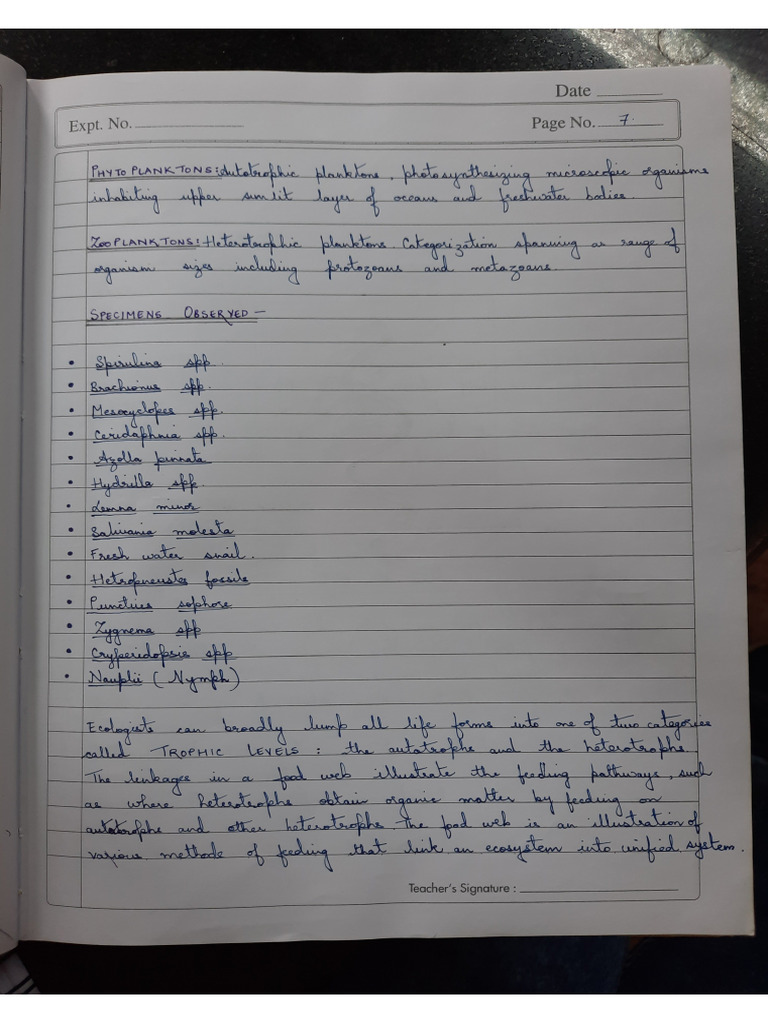 Date
Expt. No.
Page No. 7.
PHYTO PLANKTONS: Autotrophic planktons, photosynthesizing microscopic organisms
inhabiting upper sunlit layer of oceans and freshwater bodies.
ZOOPLANKTONS: Heterotrophic planktons. Categorization spanning a range of
organism sizes including protozoans and metazoans.
SPECIMENS OBSERVED -
• Spirulina spp.
• Brachionus spp.
• Mesocyclopes spp.
• Ceridaphnia spp.
• Azolla pinnata
• Hydrilla spp.
• Lemna minor
• Salivania molesta
• Fresh water snail.
• Hetropneustes fossils
• Punctius sophore
• Zygnema spp
• Cryperidopsis spp
• Nauplii (Nymph)
Ecologists can broadly lump all life forms into one of two categories
called TROPHIC LEVELS: the autotrophs and the heterotrophs.
The linkages in a food web illustrate the feeding pathways, such
as where heterotrophs obtain organic matter by feeding on
autotrophs and other heterotrophs. The food web is an illustration of
various methods of feeding that link an ecosystem into unified system.
Teacher's Signature :